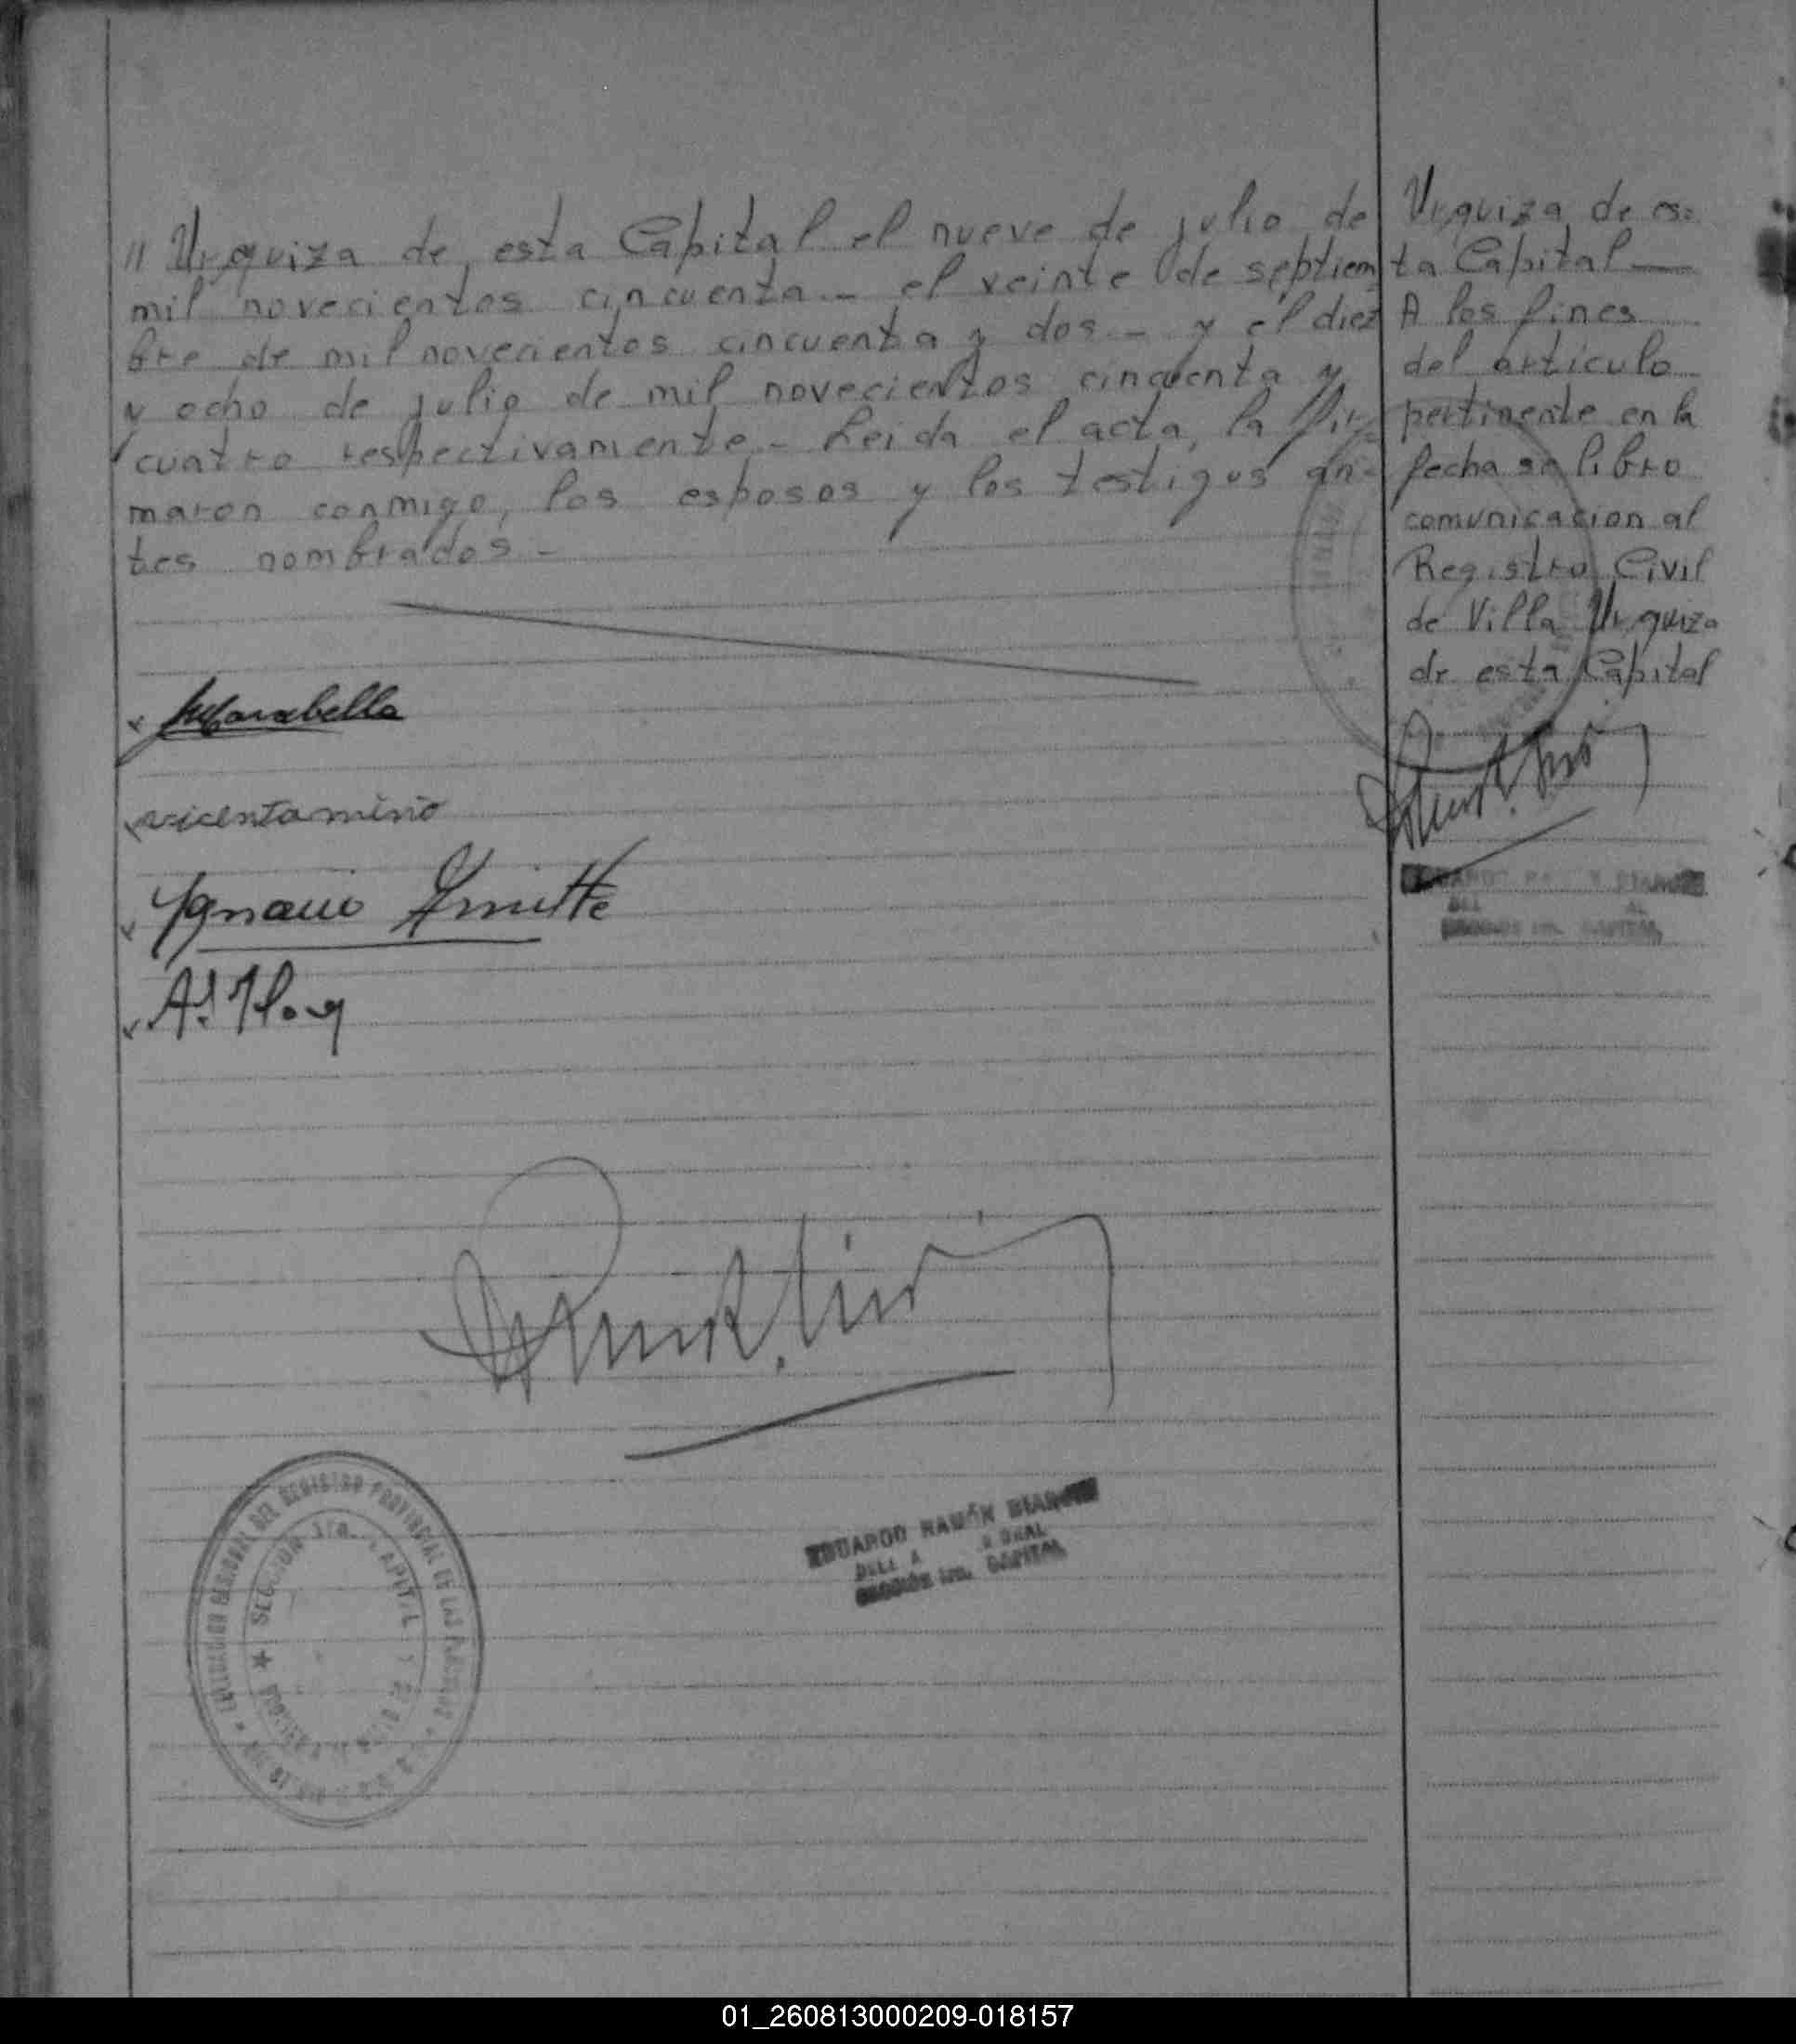 // Urquiza de esta Capital el nueve de julio de
mil novecientos cincuenta - el veinte de septiem
bre de mil novecientos cincuenta y dos - y el diez
y ocho de julio de mil novecientos cincuenta y
cuatro respectivamente - Leida el acta, la fir=
maron conmigo, los esposos y los testigos an=
tes nombrados -
vicenta miño
Ignacio
EDUARDO RAMÓN
CAPITAL
DEL REGISTRO PROVINCIAL DE LAS PERSONAS
SECCION 1ra. CAPITAL
Urquiza de es=
ta Capital
A los fines
del articulo
pertinente en la
fecha se libro
comunicacion al
Registro Civil
de Villa Urquiza
de esta Capital
CAPITAL
01_260813000209-018157